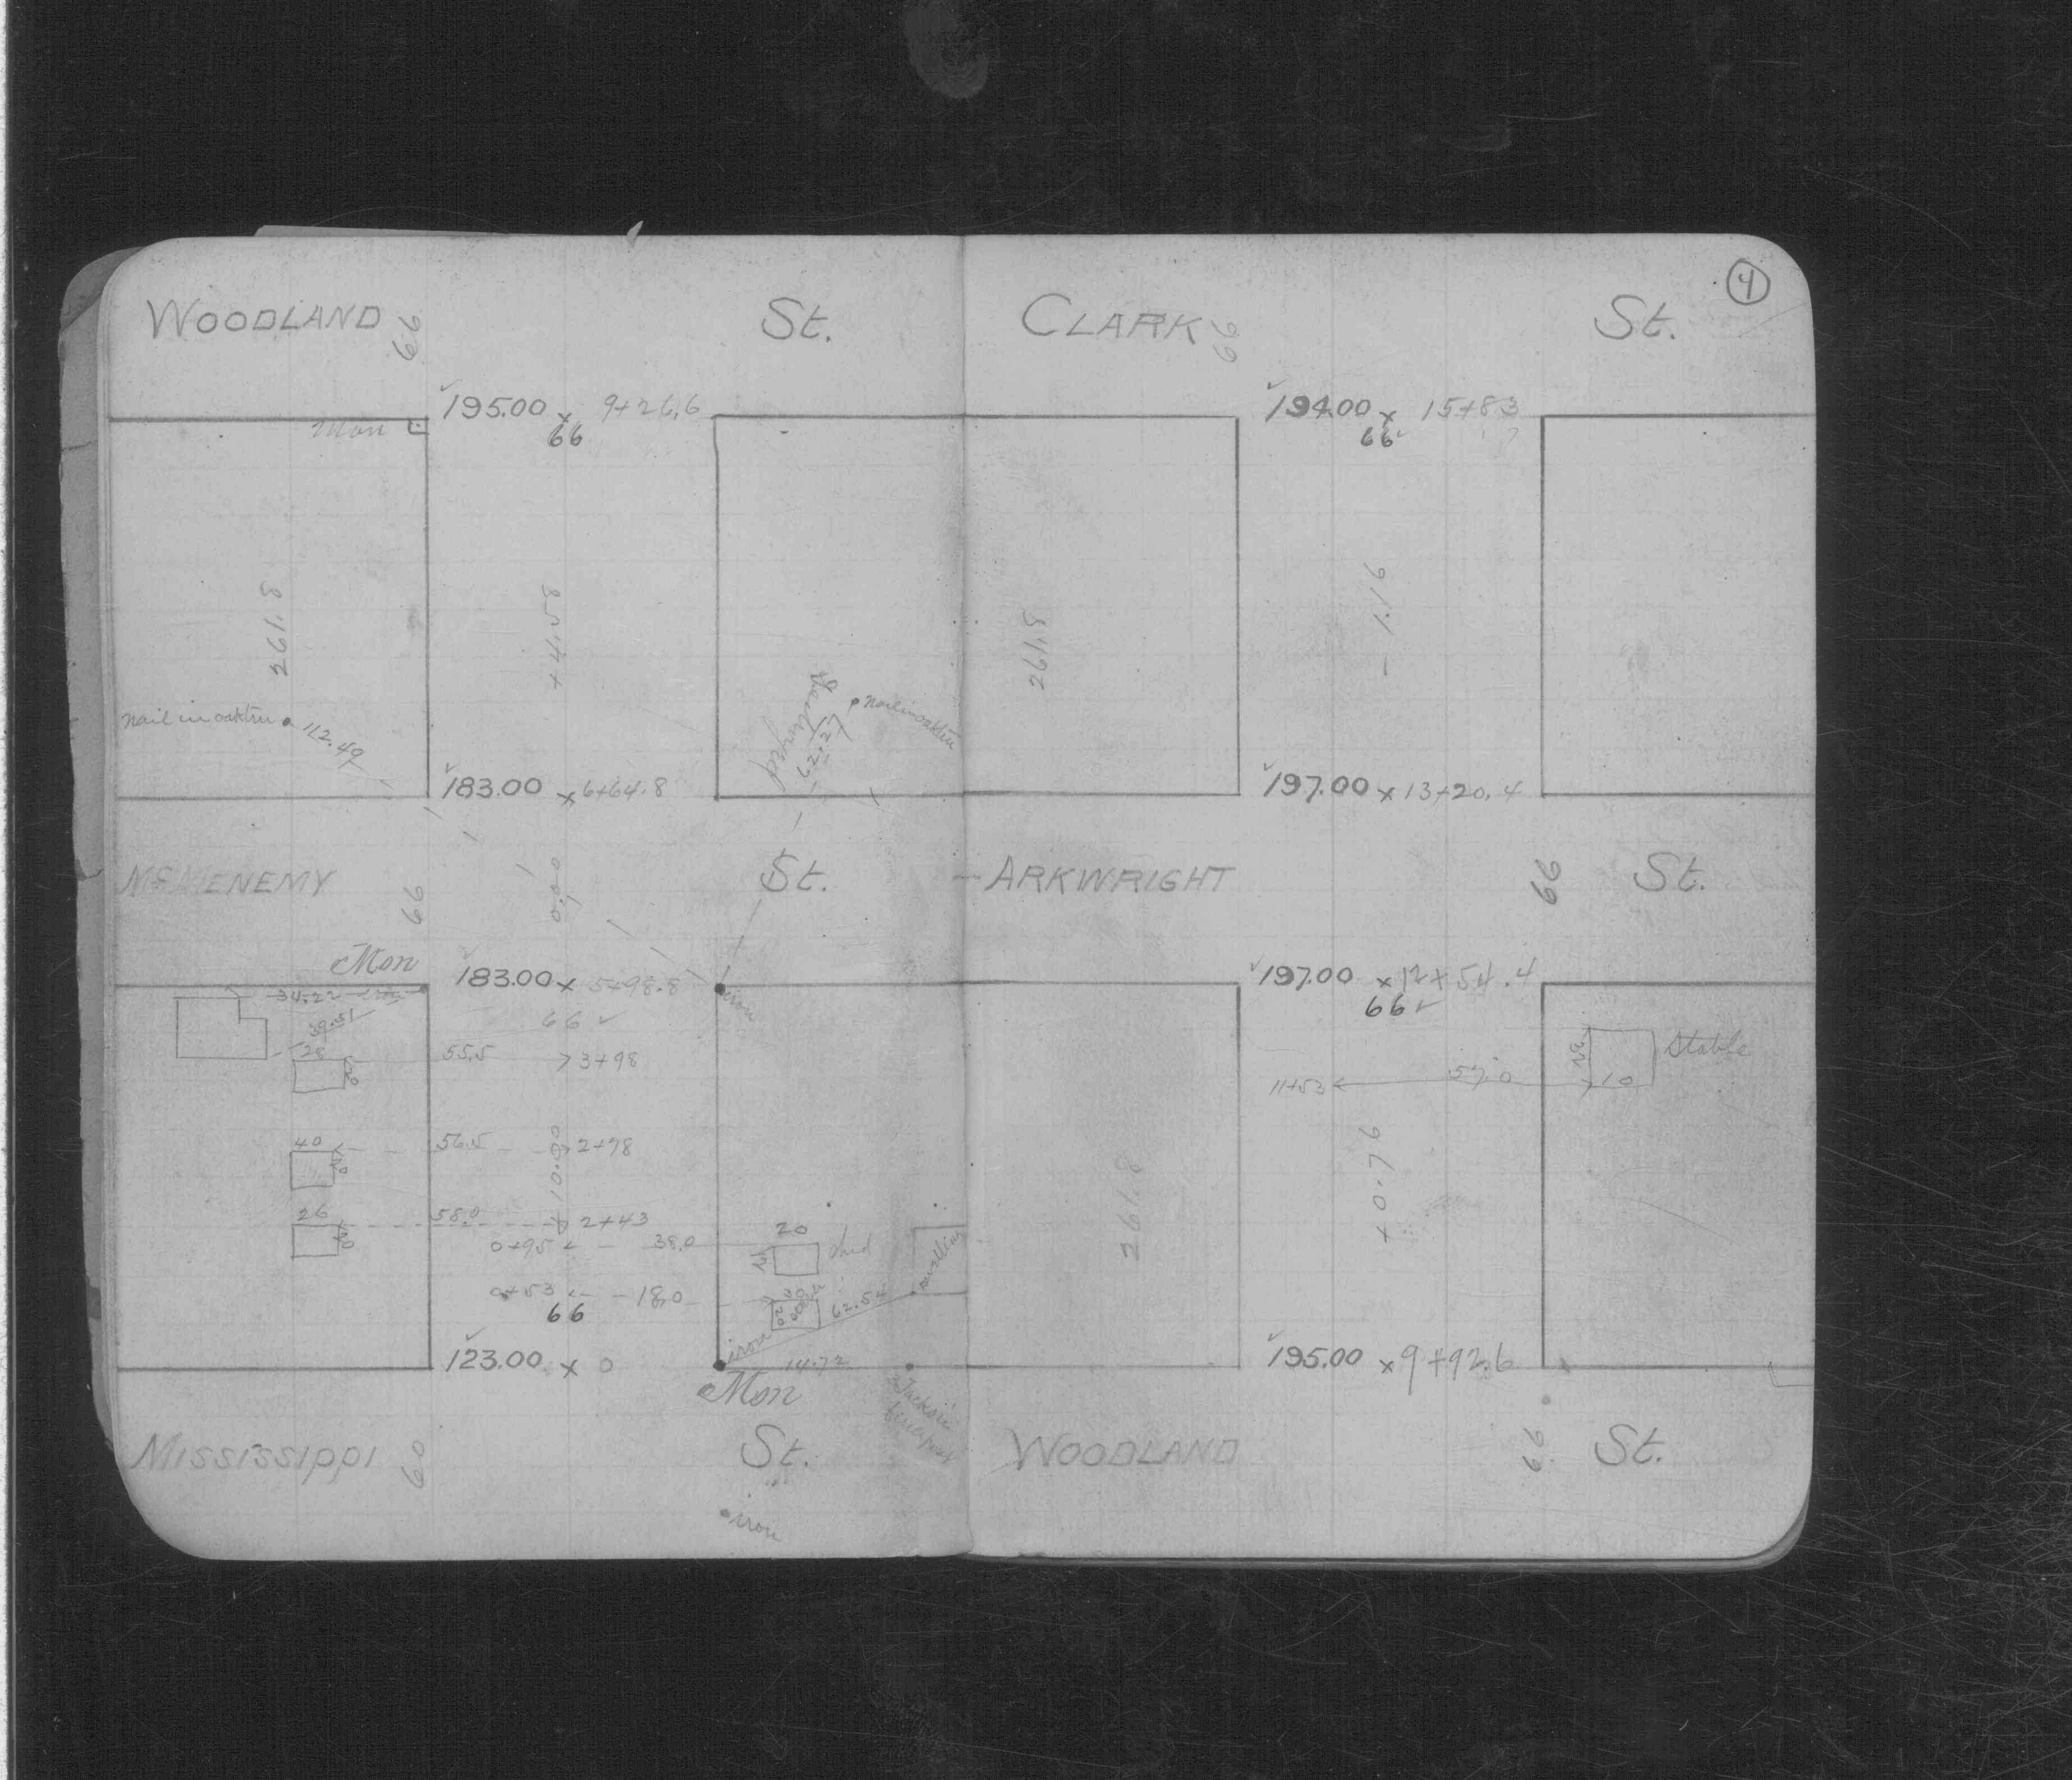 4
WOODLAND 66 St.
Mon 195.00 x 9+26.6
66
261.8
+4.58
nail in oaktree 112.49
62.27
nail in oaktree
183.00 x 6+64.8
ENEMY 66 0.00 St.
Mon
183.00 x 5+98.8
iron
66
34.22 iron
39.51
28 55.5 3+98
40 56.5 2+98
+10.080
26 58.0 2+43
0+95 38.0 20 shed
0+53 18.0
66
62.54
dwelling
iron
123.00 x 0
14.72
Mon
Mississippi 60 St.
iron
CLARK 66 St.
194.00 x 15+83
66
261.8
- 1.16
197.00 x 13+20.4
ARKWRIGHT 66 St.
197.00 x 12+54.4
66
Stable
11+53 57.0 10
261.8
+0.76
195.00 x 9+92.6
WOODLAND 66 St.